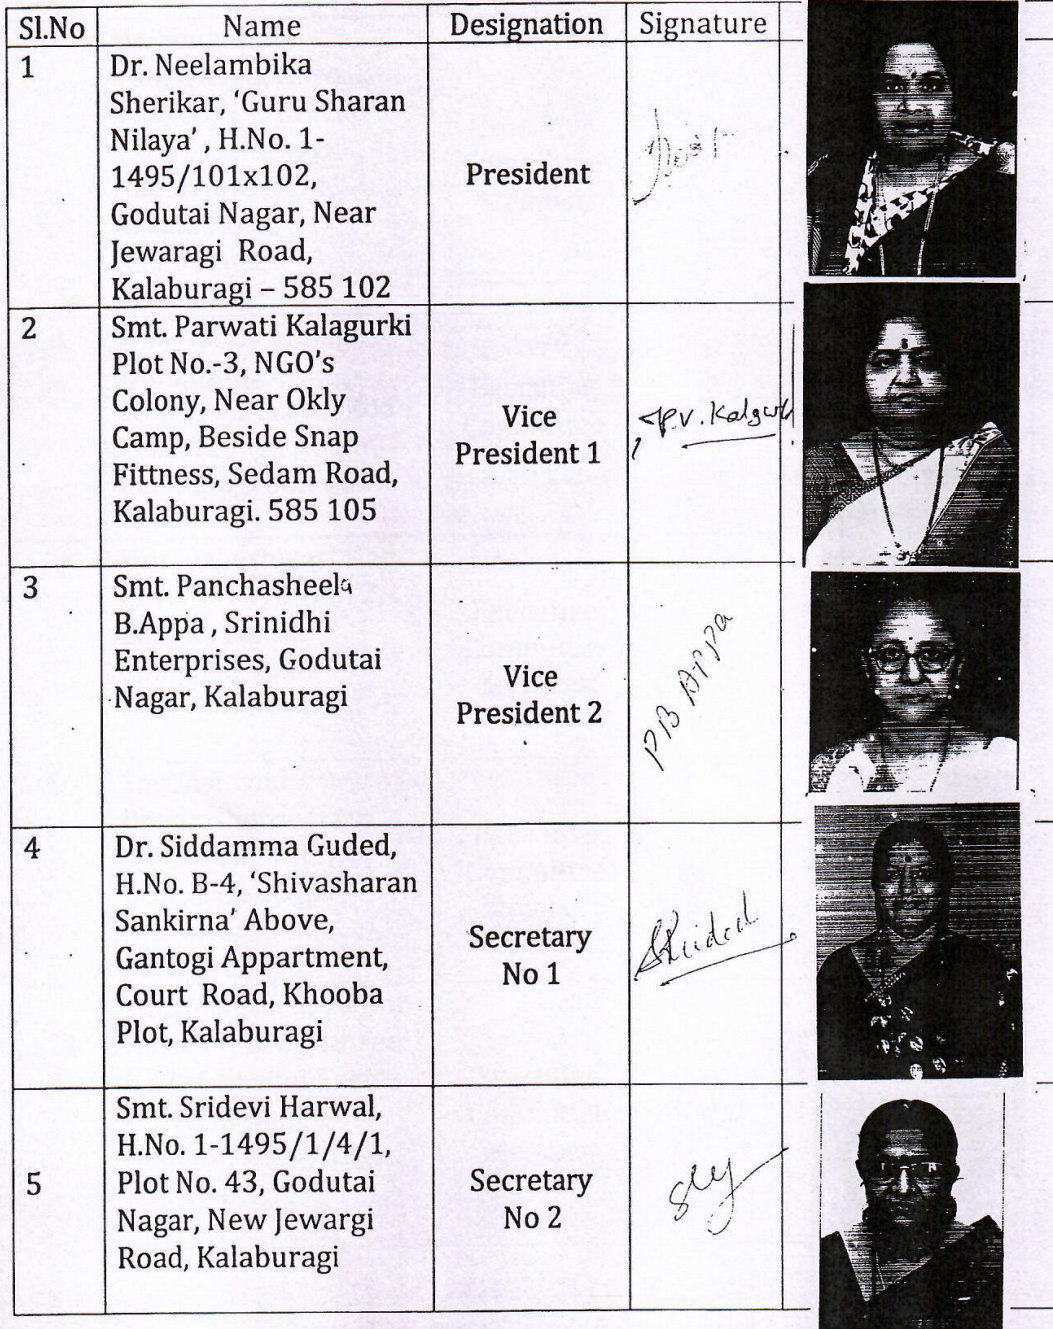 Sl.No Name Designation Signature
1 Dr. Neelambika
Sherikar, ‘Guru Sharan
Nilaya’ , H.No. 1-
1495/101x102,
Godutai Nagar, Near
Jewaragi Road,
Kalaburagi – 585 102
President
2 Smt. Parwati Kalagurki
Plot No.-3, NGO’s
Colony, Near Okly
Camp, Beside Snap
Fittness, Sedam Road,
Kalaburagi. 585 105
Vice
President 1
P.V. Kalgurk
3 Smt. Panchasheela
B.Appa , Srinidhi
Enterprises, Godutai
Nagar, Kalaburagi
Vice
President 2
PB Appa
4 Dr. Siddamma Guded,
H.No. B-4, ‘Shivasharan
Sankirna’ Above,
Gantogi Appartment,
Court Road, Khooba
Plot, Kalaburagi
Secretary
No 1
5 Smt. Sridevi Harwal,
H.No. 1-1495/1/4/1,
Plot No. 43, Godutai
Nagar, New Jewargi
Road, Kalaburagi
Secretary
No 2